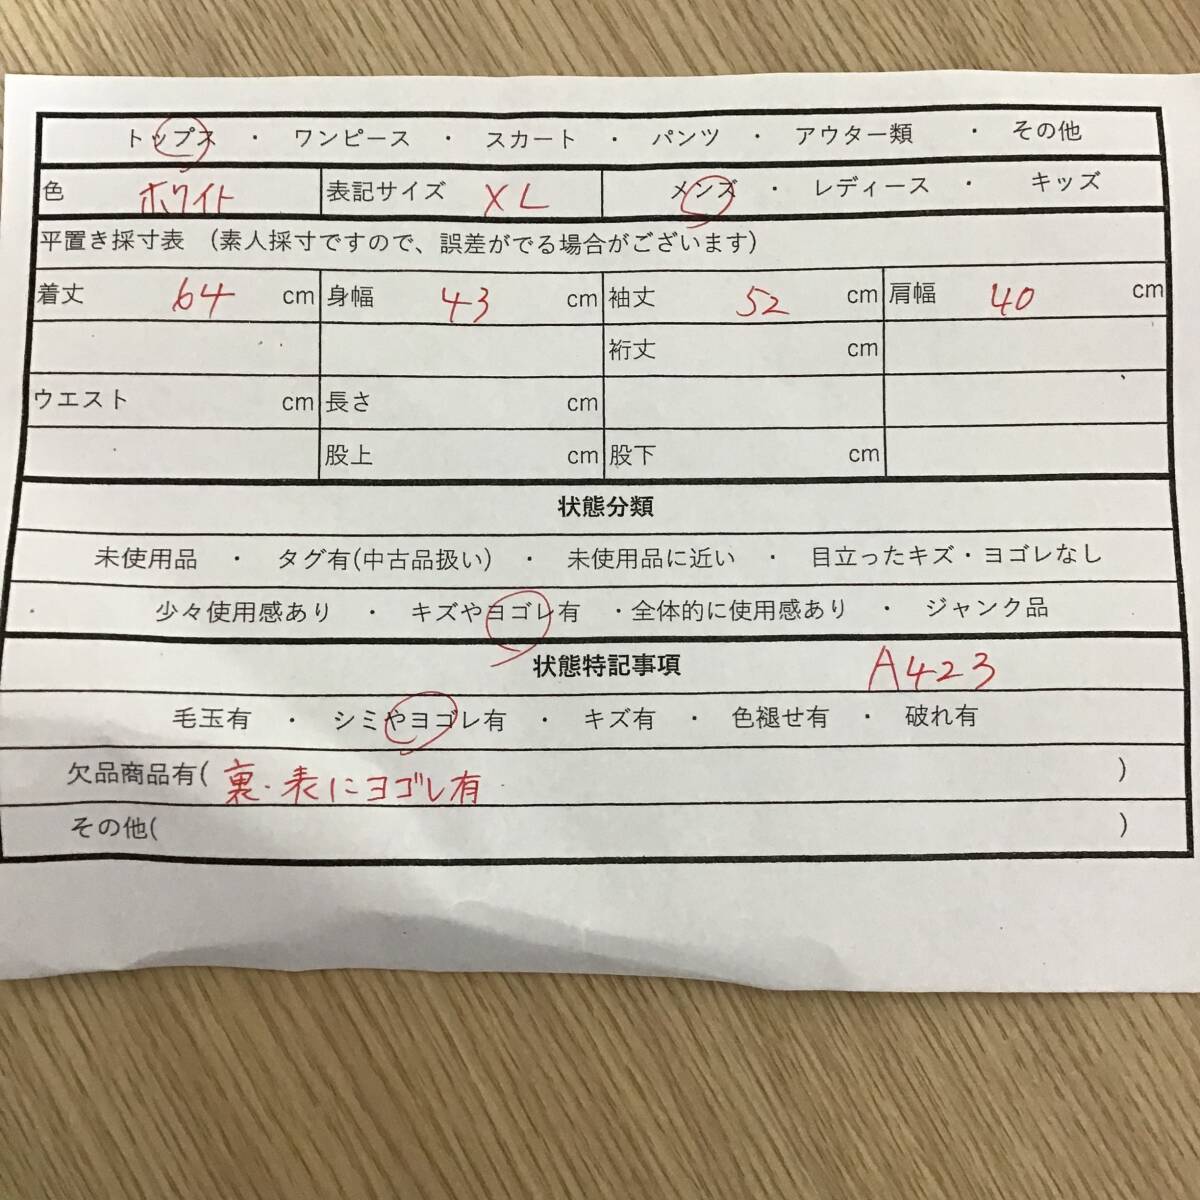 トップス ・ ワンピース ・ スカート ・ パンツ ・ アウター類 ・ その他
色 ホワイト 表記サイズ XL メンズ ・ レディース ・ キッズ
平置き採寸表 (素人採寸ですので、誤差がでる場合がございます)
着丈 64 cm 身幅 43 cm 袖丈 52 cm 肩幅 40 cm
裄丈 cm
ウエスト cm 長さ cm
股上 cm 股下 cm
状態分類
未使用品 ・ タグ有(中古品扱い) ・ 未使用品に近い ・ 目立ったキズ・ヨゴレなし
少々使用感あり ・ キズやヨゴレ有 ・全体的に使用感あり ・ ジャンク品
状態特記事項 A423
毛玉有 ・ シミやヨゴレ有 ・ キズ有 ・ 色褪せ有 ・ 破れ有
欠品商品有( 裏・表にヨゴレ有 )
その他( )